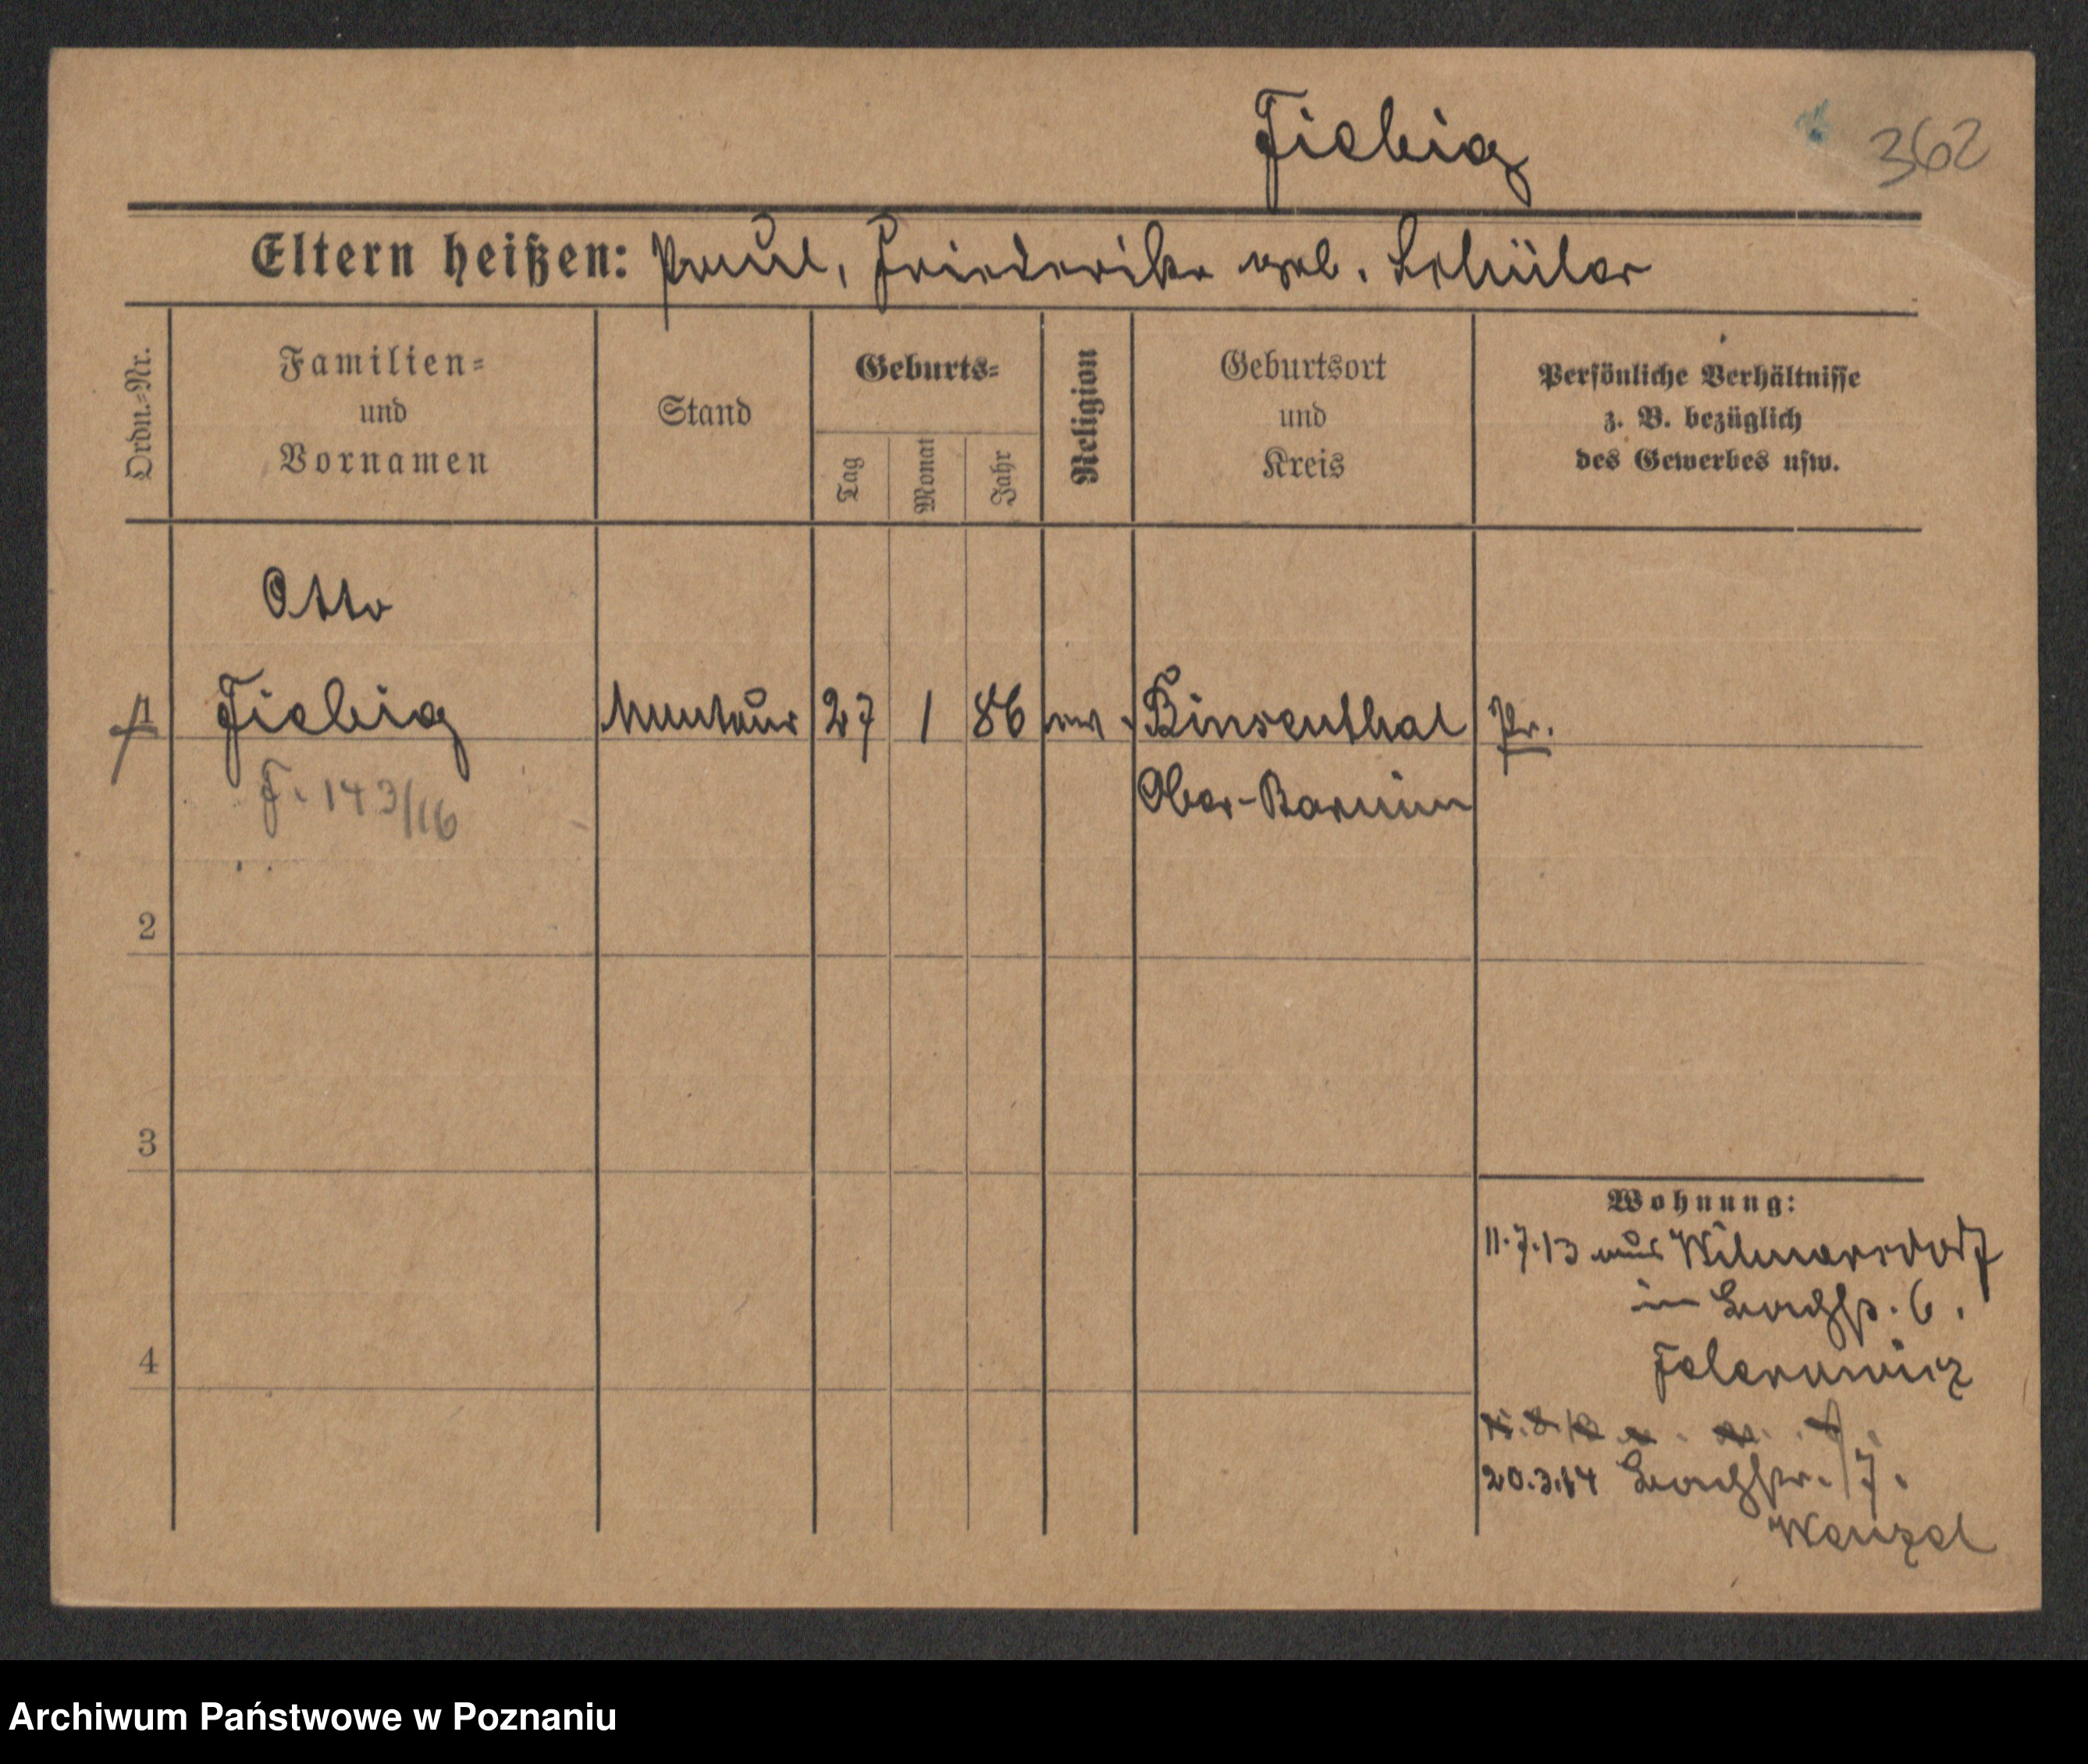 Fiebig
362
Eltern heißen: Paul, Friederike geb. Schüler
Ordn.=Nr.
Familien=
und
Vornamen
Stand
Geburts=
Tag
Monat
Jahr
Religion
Geburtsort
und
Kreis
Persönliche Verhältnisse
z. B. bezüglich
des Gewerbes usw.
Otto
1 Fiebig Monteur 27 1 86 ev. Binsenthal Pr.
F. 143/16 Ober-Barnim
2
3
4
Wohnung:
11.7.13 aus Wilmersdorf
in 6.
20.3.14 7.
Wenzel
Archiwum Państwowe w Poznaniu